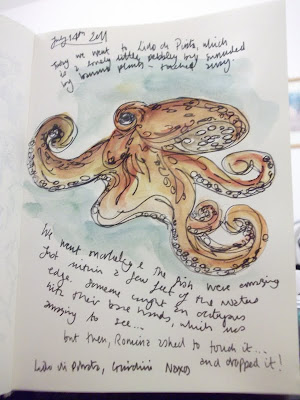 July 14th 2011
Today we went to Lido di Pirata, which
is a lovely little pebbley bay surrounded
by banana plants - tucked away.
We went snorkeling & the fish were amazing
Just within a few feet of the waters
edge. Someone caught an octopus
with their bare hands, which was
amazing to see...
but then, Romina asked to touch it...
and dropped it!
Lido di Pirata, Giardini Naxos